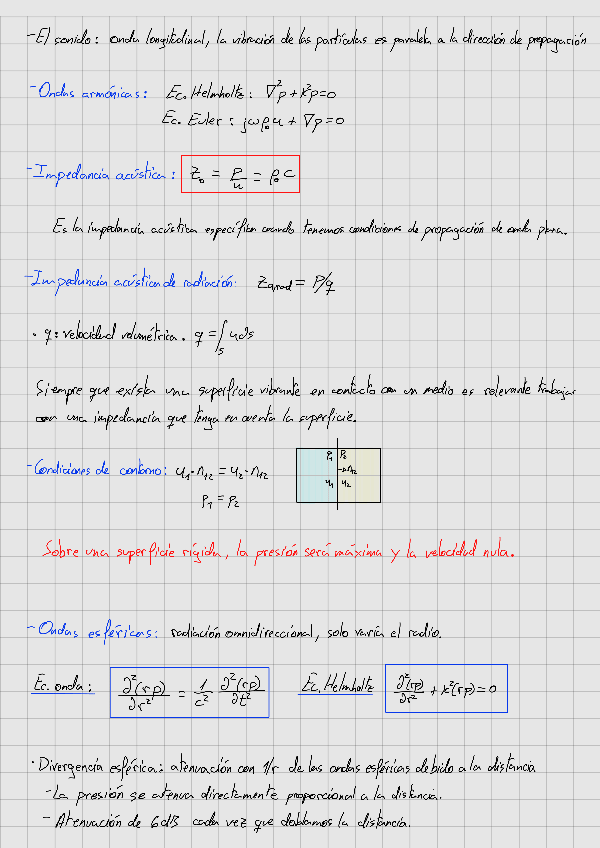 - El sonido: onda longitudinal, la vibración de las partículas es paralela a la dirección de propagación
- Ondas armónicas: Ec. Helmholtz: ∇²p + k²p = 0
Ec. Euler: jωρ₀u + ∇p = 0
- Impedancia acústica: Z₀ = p/u = ρ₀c
Es la impedancia acústica específica cuando tenemos condiciones de propagación de onda plana.
- Impedancia acústica de radiación: Zₐrad = P/q
· q: velocidad volumétrica. q = ∫ₛ u ds
Siempre que exista una superficie vibrante en contacto con un medio es relevante trabajar
con una impedancia que tenga en cuenta la superficie.
- Condiciones de contorno: u₁·n₁₂ = u₂·n₁₂
p₁ = p₂
P₁ P₂
n₁₂
u₁ u₂
Sobre una superficie rígida, la presión será máxima y la velocidad nula.
- Ondas esféricas: radiación omnidireccional, solo varía el radio.
Ec. onda: ∂²(rp)/∂r² = 1/c² ∂²(rp)/∂t² Ec. Helmholtz ∂²(rp)/∂r² + k²(rp) = 0
· Divergencia esférica: atenuación con 1/r de las ondas esféricas debido a la distancia
- La presión se atenua directamente proporcional a la distancia.
- Atenuación de 6dB cada vez que doblamos la distancia.